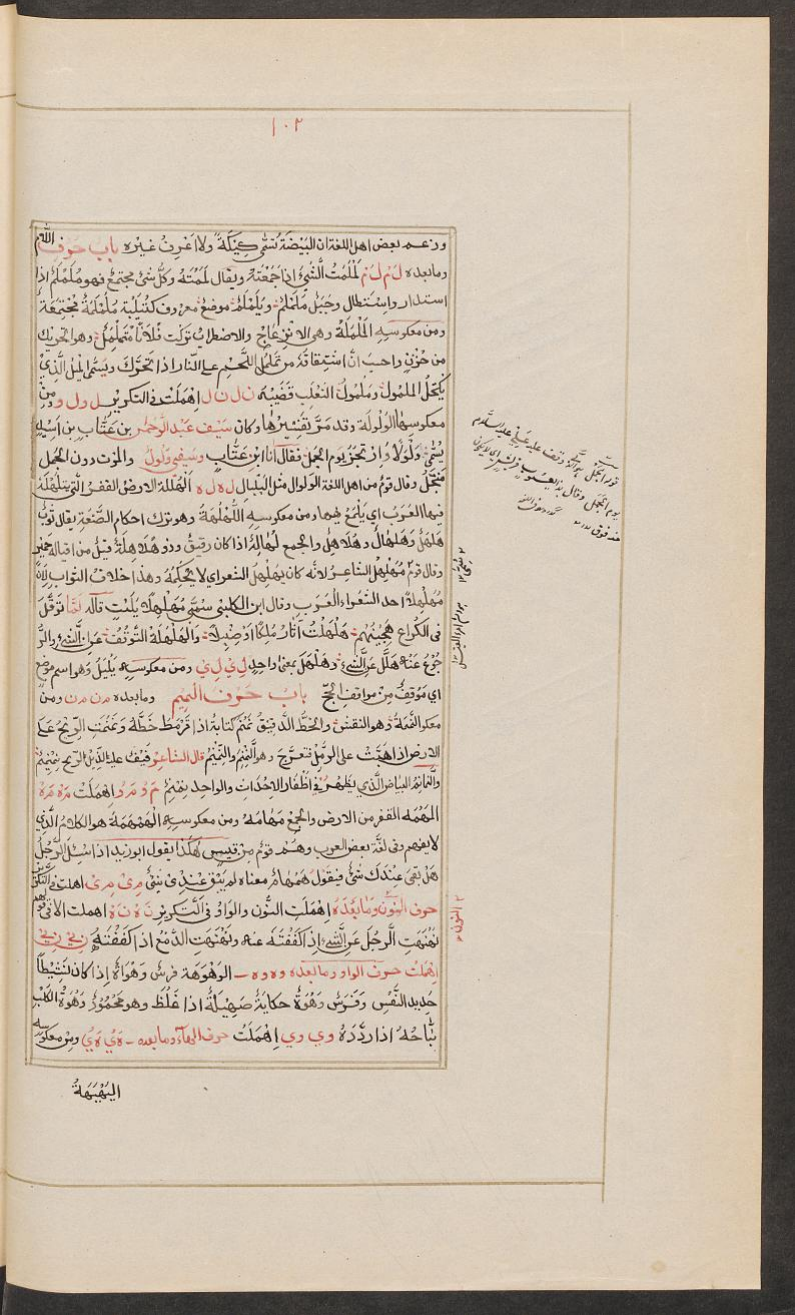 ١٠٢
وزعم بعض اهل اللغة ان البَيْضَة تُسَمّى كَيْكَةً ولا اَعْرِفُ غيره باب حَرف اللّام
وما بعده ل م ل م لَمْلَمْتُ الشَّيْئَ اِذا جَمَعْتَهُ ويقال لَمَمْتَهُ وكلّ شئ مجتمع فهو مُلَمْلَم اذا
استدار واِسْتَطال وجَبَل مُلَمْلَم ويَلَمْلَم موضعٌ معروف كتيبة مُلَمْلَمَةٌ مُجْتَمِعَةٌ
ومن معكوسه المَلْمَلَة وهى الانزعاج والاضطراب تركت فُلاناً مُتَمَلْمِلٌ وهو التحريك
من حُزْنٍ واحسب انّ اشتِقاقَهُ من تَمَلمُل اللَّحْم على النّار اذا تَحَرَّكَ ويسمّى المِيلُ الَّذِيْ
يُكْتَحَلُ المُلمُولَ ومُلمُولُ الثَعْلَب قَضيْبُه ن ل ن ل اِهْمَلَتْ فى التكرير ل و ل و ومِن
معكوسها الوَلْوَلَة وقد مَرَّ تَفْسِيْرُها وكان سَيْف عَبْدِ الرَّحْمٰن بن عَتَّاب بن اَسِيْد
يُسَمّى وَلْوَلاً واِرْتَجَزَ يوم الجمل فقال اَنا ابن عَتَّابٍ وسَيْفى وَلْوَلْ والمَوْت دون الجمل
مُجَلَّلْ وقال قوم من اهل اللغة الوَلوال مثل البَلْبال ل ه ل ه اللُهْلُه الارضُ القَفْرُ الّتى يتلَهْلَهُ
فيها السَّرَب اى يَلْمَعُ لهما ومن معكوسه الهَلْهَلة وهو ترك احكام الصَّنْعَة يقال ثَوْب
هَلهَلٌ وهَلهَالٌ وهُلَاهِلٌ والجمع هَلاهِلُ اذا كان رقيقٌ وذو هُلَاهِلَةَ قَيْلٌ من اقيالِ حِمْيَر
وقال قومٌ مُهَلهِلُ الشاعرُ لانّه كان يُهلهِلُ الشعرَ اى لا يُحْكِمُهُ وهذا خلاف الثواب لاَنَّ
مُهَلْهِلاً احد الشعراء العَرَب وقال ابن الكلبىّ سُمّى مُهَلْهِلاً بِبَيْتٍ قالَه لَمَّا تَوَقَّلَ
فى الكُراع هَجِيْنُهُمْ هَلْهَلْتُ اَثْأَرُ مَلِكاً اَوْ صِنْبِلاَ والهَلْهَلَة التَّوَقُّفُ عن الشَّئ والرُّ
جُوعُ عَنْهُ هَلَّلَ عَنِ الشَّئ وهَلْهَلَ بمعنىً واحدٍ ل ى ل ى ومن معكوسه يَلْيَلُ وهو اسم موضع
اى مَوْقِفٌ مِن مواقفِ الحَجّ باب حَرف الميم وما بعده م ن م ن ومن
معكو النَّمْنَمَةُ وهو النقش والخطّ الدَّقيقُ نَمْنَم كتابَهُ اذا قَرمَطَ خَطَّهُ ونَمْنَمَتِ الرّيحُ عَلى
الارض اذا هَبَّتْ على الرَّمْل فتعرَّج وهو النِّمْنِمُ والنِّمْنِيْمُ قال الشاعر فَيْفٌ عليه لِذَيْلِ الرِّيحِ نِمْنِيْمُ
والنَّمانِمُ البياضُ الَّذي يَظْهَرُ فى اَظْفار الاَحْداث والواحد نِمْنِمٌ م و م و اهْمَلَتْ م ه م ه
المَهْمَه القفر من الارض والجمع مَهامَهُ ومن معكوسه الهَمْهَمَةُ هو الكلامُ الَّذِي
لا يُفهم وفى لُغَة بعض العرب وهم قوم مِن قيس هكذا يقول ابو زيد اذا سُئِلَ الرَّجُلُ
هَلْ بقى عِنْدَكَ شئ فيقول هَمْهامْ معناه لم يَبْقَ عِنْدِى شَئٌ م ى م ى اهملت فى التكرير
حرف النّون وما بَعْدَهُ اِهْمَلَتِ النُّون والوَاوُ فى التَّكْرِير ن ه ن ه اهملت الا قولهم
نَهْنَهَتِ الرَّجُلَ عَنِ الشَّئ اِذْ اكْفَفْتَه عنه ونَهْنَهَتِ الدَّمْعَ اذا كَفَفْتَهُ ن ى ن ى
اِهْمَلت حرف الواو وما بعده و ه و ه ـ الوَهْوَهَة فَرسٌ وَهْوَاهٌ اِذا كان نَشِيْطاً
حَدِيد النَّفْس وفَرَسٌ وَهْوَهٌ حكايَةُ صَهِيْلِهُ اذا غَلُظَ وهو مَحْمُودٌ وَهْوَهَ الكَلْبِ
نُبَاحُهُ اذا رَدَّدَهُ و ى و ى اِهْمَلَتْ حرف الهاء وما بعده ـ ه ى ه ى ومن معكوسه
اليَهْيَهَةُ
٢ النون